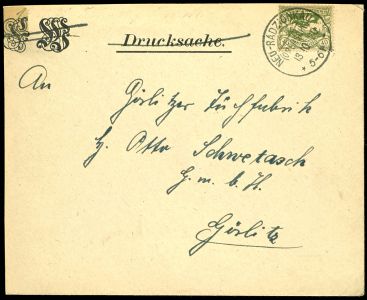 Drucksache.
NEU-RADZIONKAU
5-6
An
Görlitzer Tuchfabrik
H. Otto Schwetasch
G. m. b. H.
Görlitz